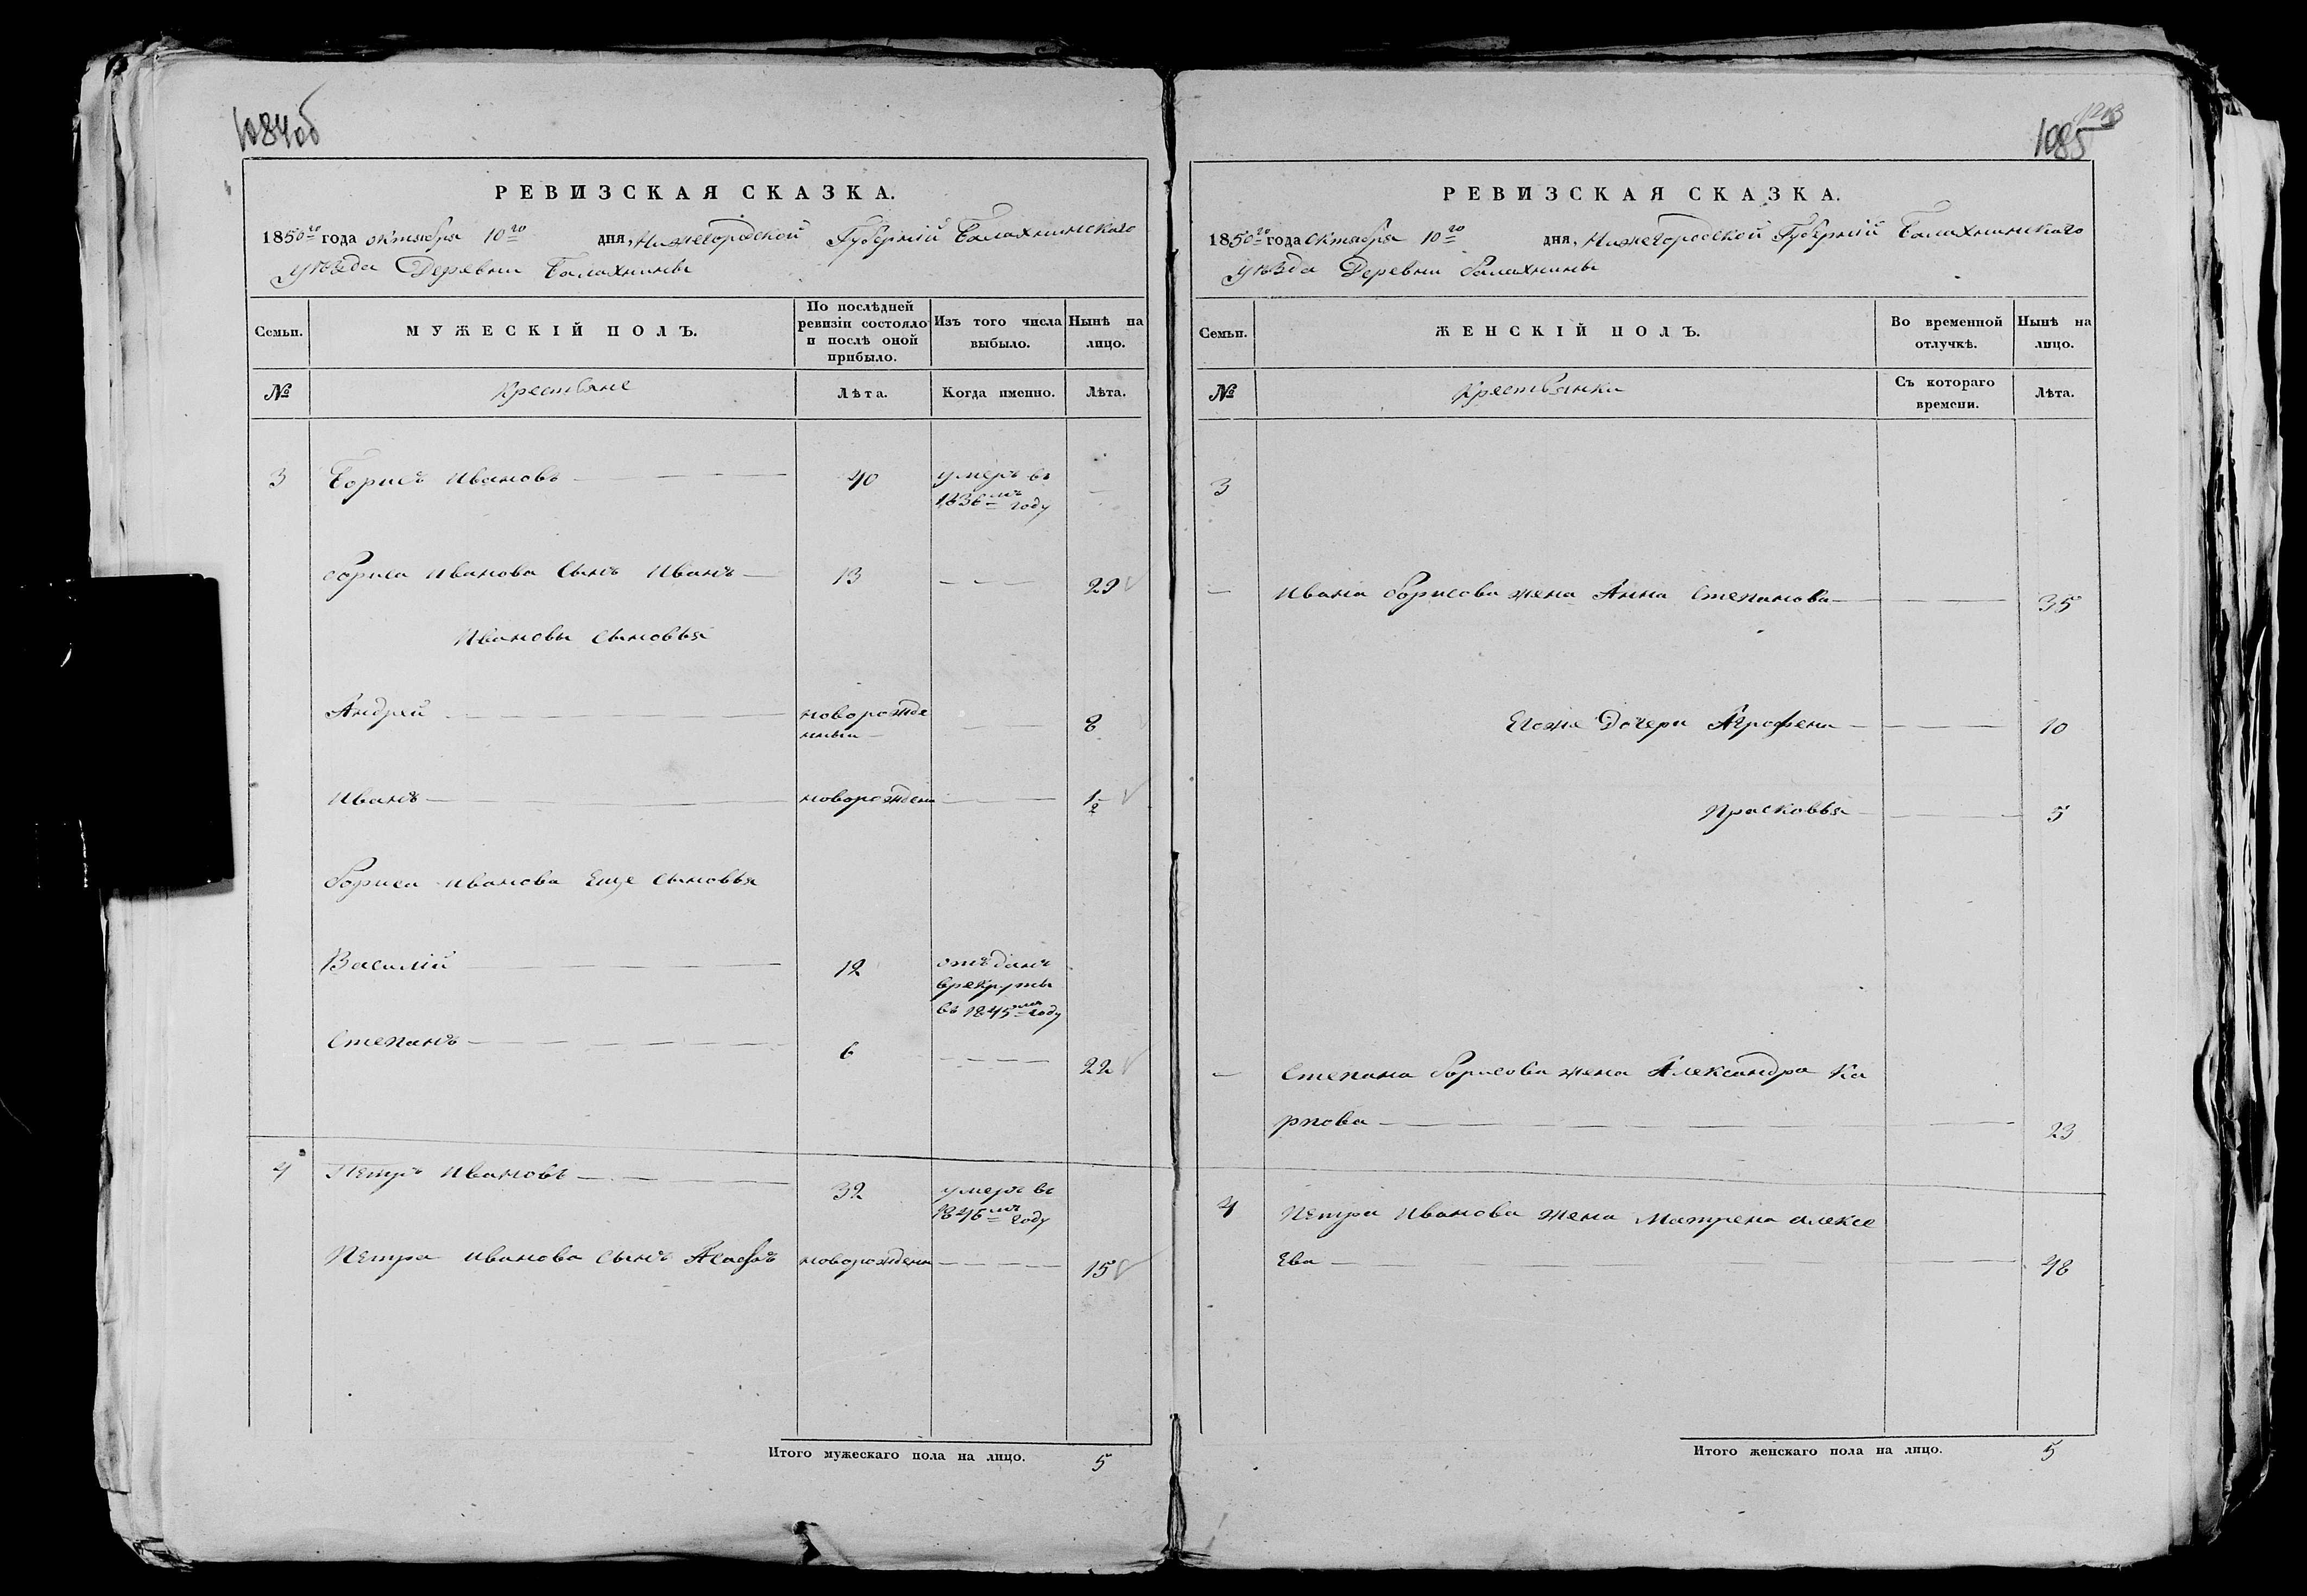 1084об
РЕВИЗСКАЯ СКАЗКА.
1850го года октября 10го дня, Нижегородской Губернiй Балахнинскаго
уѣзда Деревни Балахнины
Семьи.
МУЖЕСКІЙ ПОЛЪ.
По послѣдней
ревизіи состояло
и послѣ оной
прибыло.
Изъ того числа
выбыло.
Нынѣ на
лицо.
№
Крестьяне
Лѣта.
Когда именно.
Лѣта.
3 Борисъ Ивановъ 40 умеръ въ
1836мъ году
Бориса Иванова Сынъ Иванъ 13 29
Ивановы Сыновья
Андрей новорожде 8
нный
Иванъ новорожден 1/2
Бориса Иванова Еще Сыновья
Василiй 12 отъданъ
врекруты
въ 1845мъ году
Степанъ 6 22
4 Петръ Ивановъ 32 умеръ въ
1846мъ году
Петра Иванова Сынъ новорожден 15
Итого мужескаго пола на лицо. 5
1213
1085
РЕВИЗСКАЯ СКАЗКА.
1850го года Октября 10го дня, Нижегородской Губернiй Балахнинскаго
уѣзда Деревни Балахнины
Семьи.
ЖЕНСКІЙ ПОЛЪ.
Во временной
отлучкѣ.
Нынѣ на
лицо.
№
Крестьянки
Съ котораго
времени.
Лѣта.
3
Ивана Борисова жена Анна Степанова 35
Егоже Дочери Аграфена 10
Прасковья 5
Степана Борисова жена Александра Ка
рпова 23
4 Петра Иванова жена Матрена алексе
Ева 48
Итого женскаго пола на лицо. 5